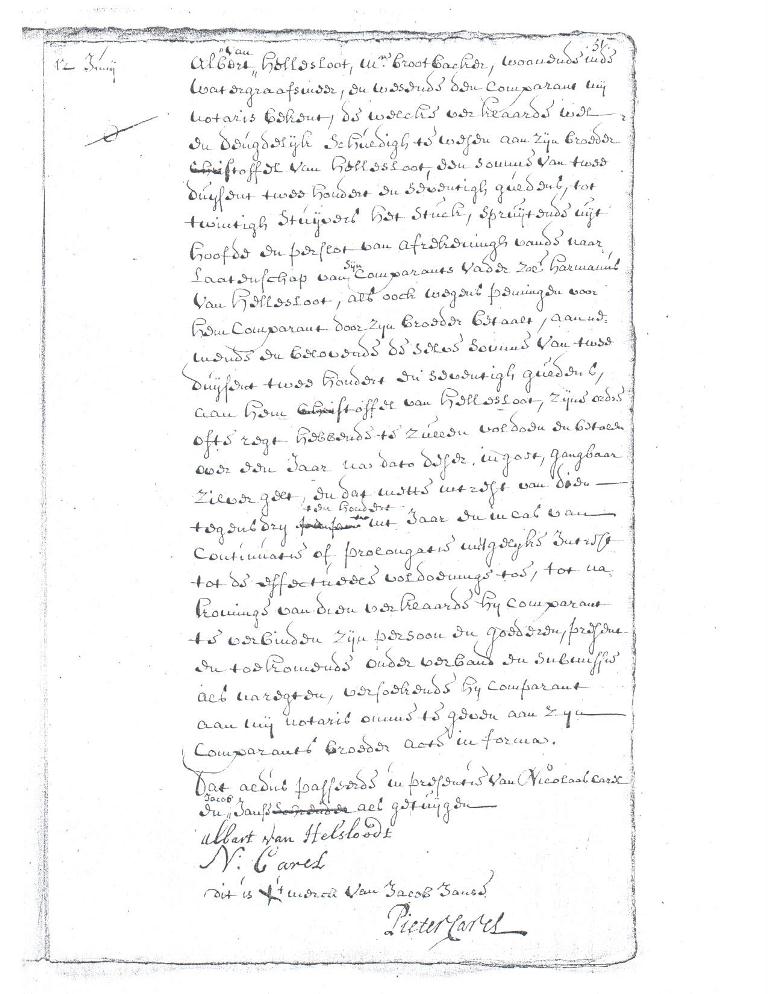 51.
12 Junij
van
Albert Hellesloot, mr. brootbacker, woonende inde
watergraafsmeer, en wesende den Comparant mij
notaris bekent, de welcke verklaarde wel
en deugdelijk schuldigh te wesen aan zijn broeder
Christoffel van Hellesloot, den somme van twee
duijsent twee hondert en seventigh guldens, tot
twintigh stuijvers het stuck, spruijtende uijt
hoofde en perslot van afrekeningh vande naar
Laatenschap van sijn Comparants vader zal: Harmanus
van Hellesloot, als oock wegens penningen voor
hem Comparant door zijn broeder betaalt, aanne-
mende en belovende de selve somme van twee
duijsent twee hondert en seventigh guldens,
aan hem Christoffel van Hellesloot, zijne ordre
ofte regt hebbende te zullen voldoen en betalen
over een Jaar na dato deser, in goet, gangbaar
zilver gelt, en dat mette intrest van dien
tegens dry ten hondert int Jaar en in cas van
Continuatie of prolongatie intgelijks Intrest
tot de effectueele voldoeninge toe, tot na-
kominge van dien verklaarde hij Comparant
te verbinden zijn persoon en goederen, present
en toekomende onder verband en submissie
als naregten, versoekende hij Comparant
aan mij notaris omme te geven aan zijn
Comparants broeder acte in forma.
Dat aldus passeerde in presentie van Nicolaas Carel
en Jacob Janse als getuijgen
Albart van Helsloodt
N: Carel
dit is t merck van Jacob Janse
Pieter Carel